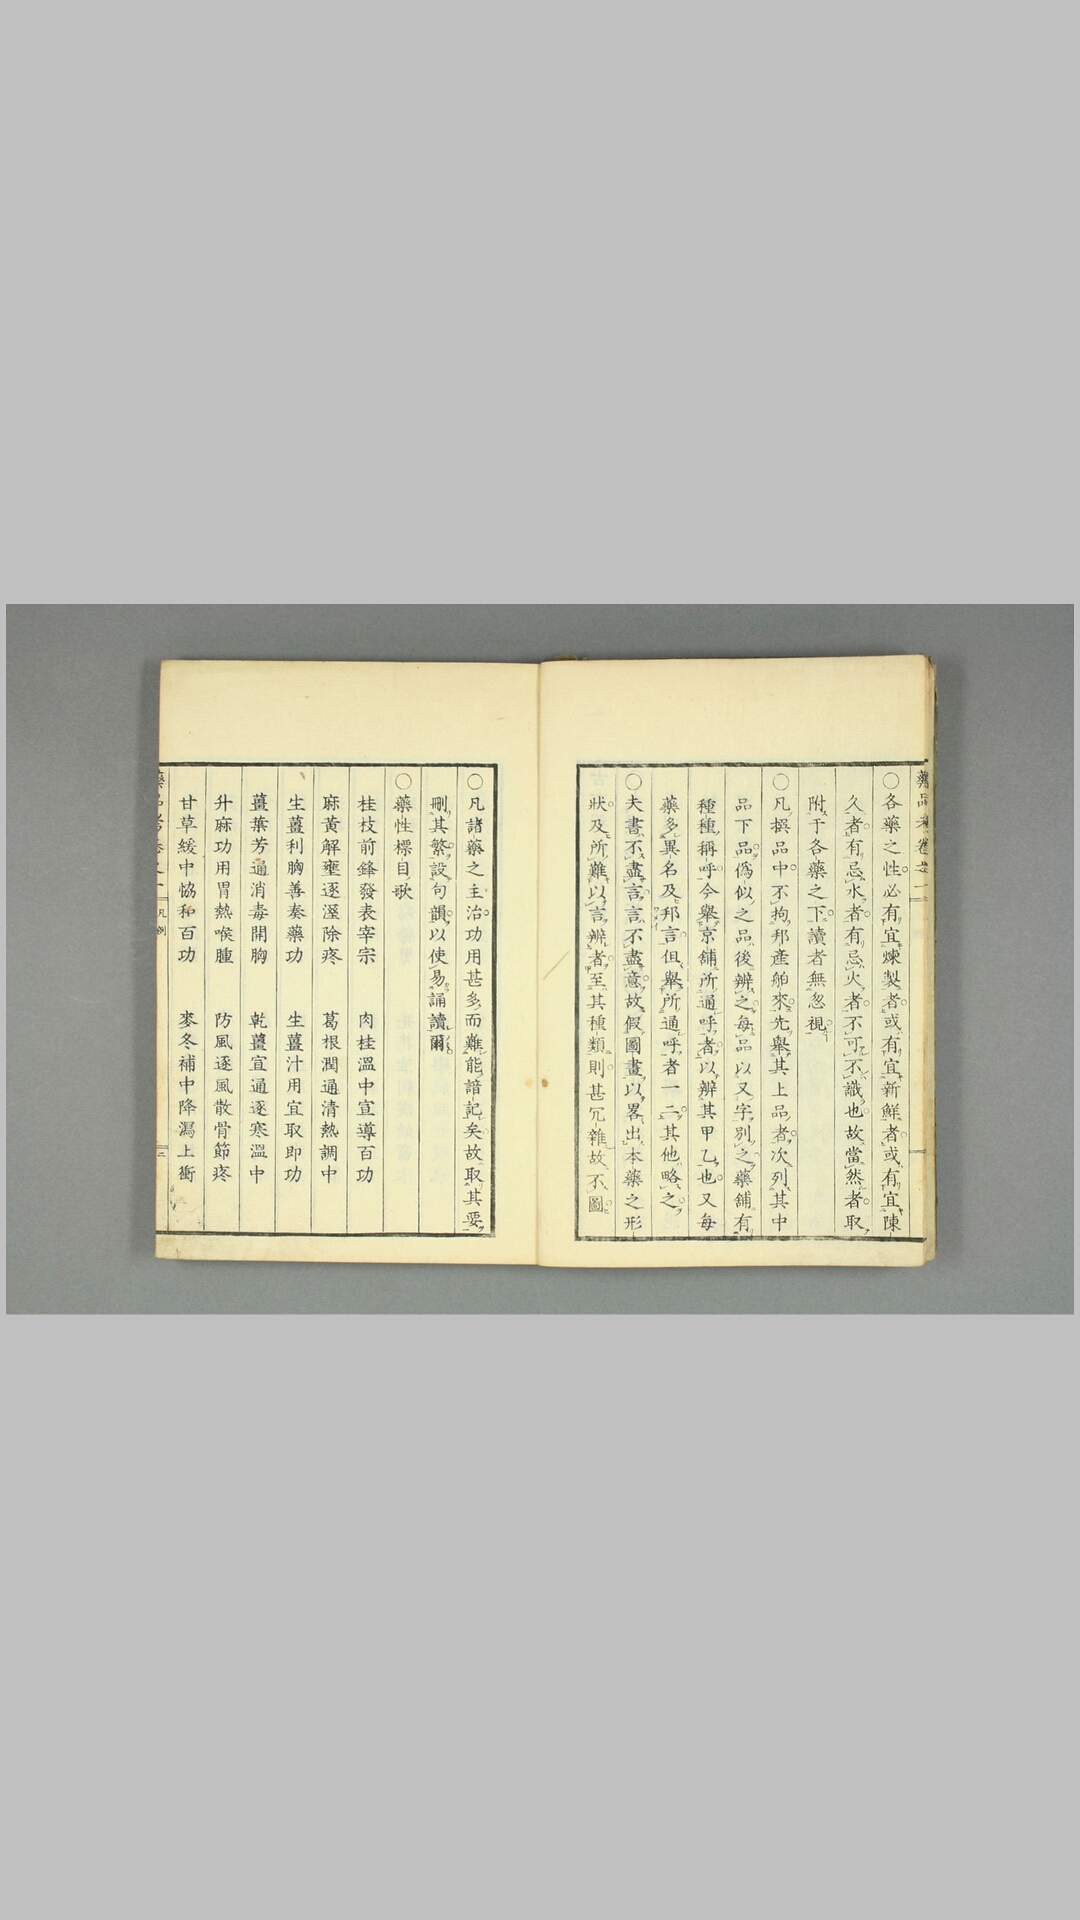 藥品考卷之一
〇各藥之性必有宜煉製者或有宜新鮮者或有宜陳
久者有忌水者有忌火者不可不識也故當然者取
附于各藥之下讀者無忽視
〇凡撰品中不拘邦產舶來先舉其上品者次列其中
品下品僞似之品後辨之每品以又字別之藥舖有
種種稱呼今舉京舖所通呼者以辨其甲乙也又每
藥多異名及邦言但舉所通呼者一二其他略之
〇夫書不盡言言不盡意故假圖畫以畧出本藥之形
狀及所難以言辨者至其種類則甚冗雜故不圖
〇凡諸藥之主治功用甚多而難能諳記矣故取其要
刪其繁設句韻以使易誦讀爾
〇藥性標目歌
桂枝前鋒發表宰宗 肉桂溫中宣導百功
麻黃解壅逐溼除疼 葛根潤通清熱調中
生薑利胸善奏藥功 生薑汁用宜取即功
薑葉芳通消毒開胸 乾薑宣通逐寒溫中
升麻功用胃熱喉腫 防風逐風散骨節疼
甘草緩中恊和百功 麥冬補中降瀉上衝
凡例
二